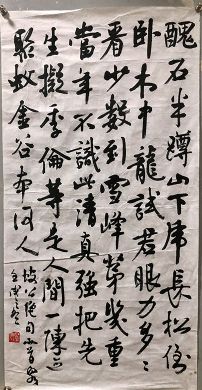 醜石半蹲山下虎長松倒
卧水中龍試君眼力多
看少数到雲峰第幾重
當年不識此清真強把先
生擬季倫等是人間一陳迹
聚蚊金谷本何人
坡公絕句